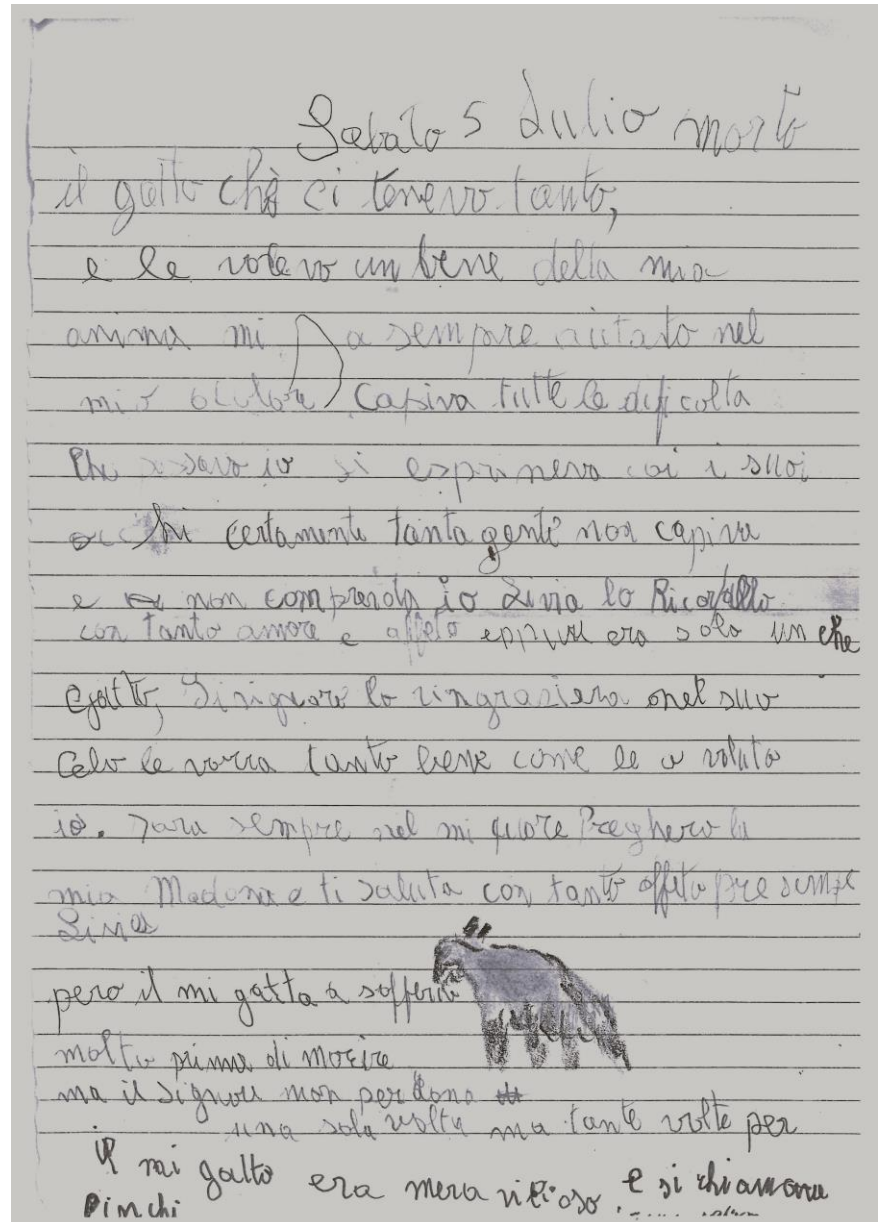 Sabato 5 Lulio morto
il gatto chè ci tenevo tanto,
e le volevo un bene della mia
anima mi a sempre aiutato nel
mio capiva tutte le dificolta
che io si esprimeva coi i suoi
occhi certamente tanta gente non capiva
e non comprende io Livia lo
con tanto amore e affeto eppure era solo un che
gatto, Signore lo ringraziera nel suo
Celo le vorra tanto bene come le o voluto
io. Sara sempre nel mi quore Preghero la
mia Madona e ti saluta con tanto affeto pre sempe
Livia
pero il mi gatto a sofferto
molto prima di morire
ma il Signore non perdona
una sola volta ma tante volte per
il mi gatto era meravilioso e si chiamava
Pinchi